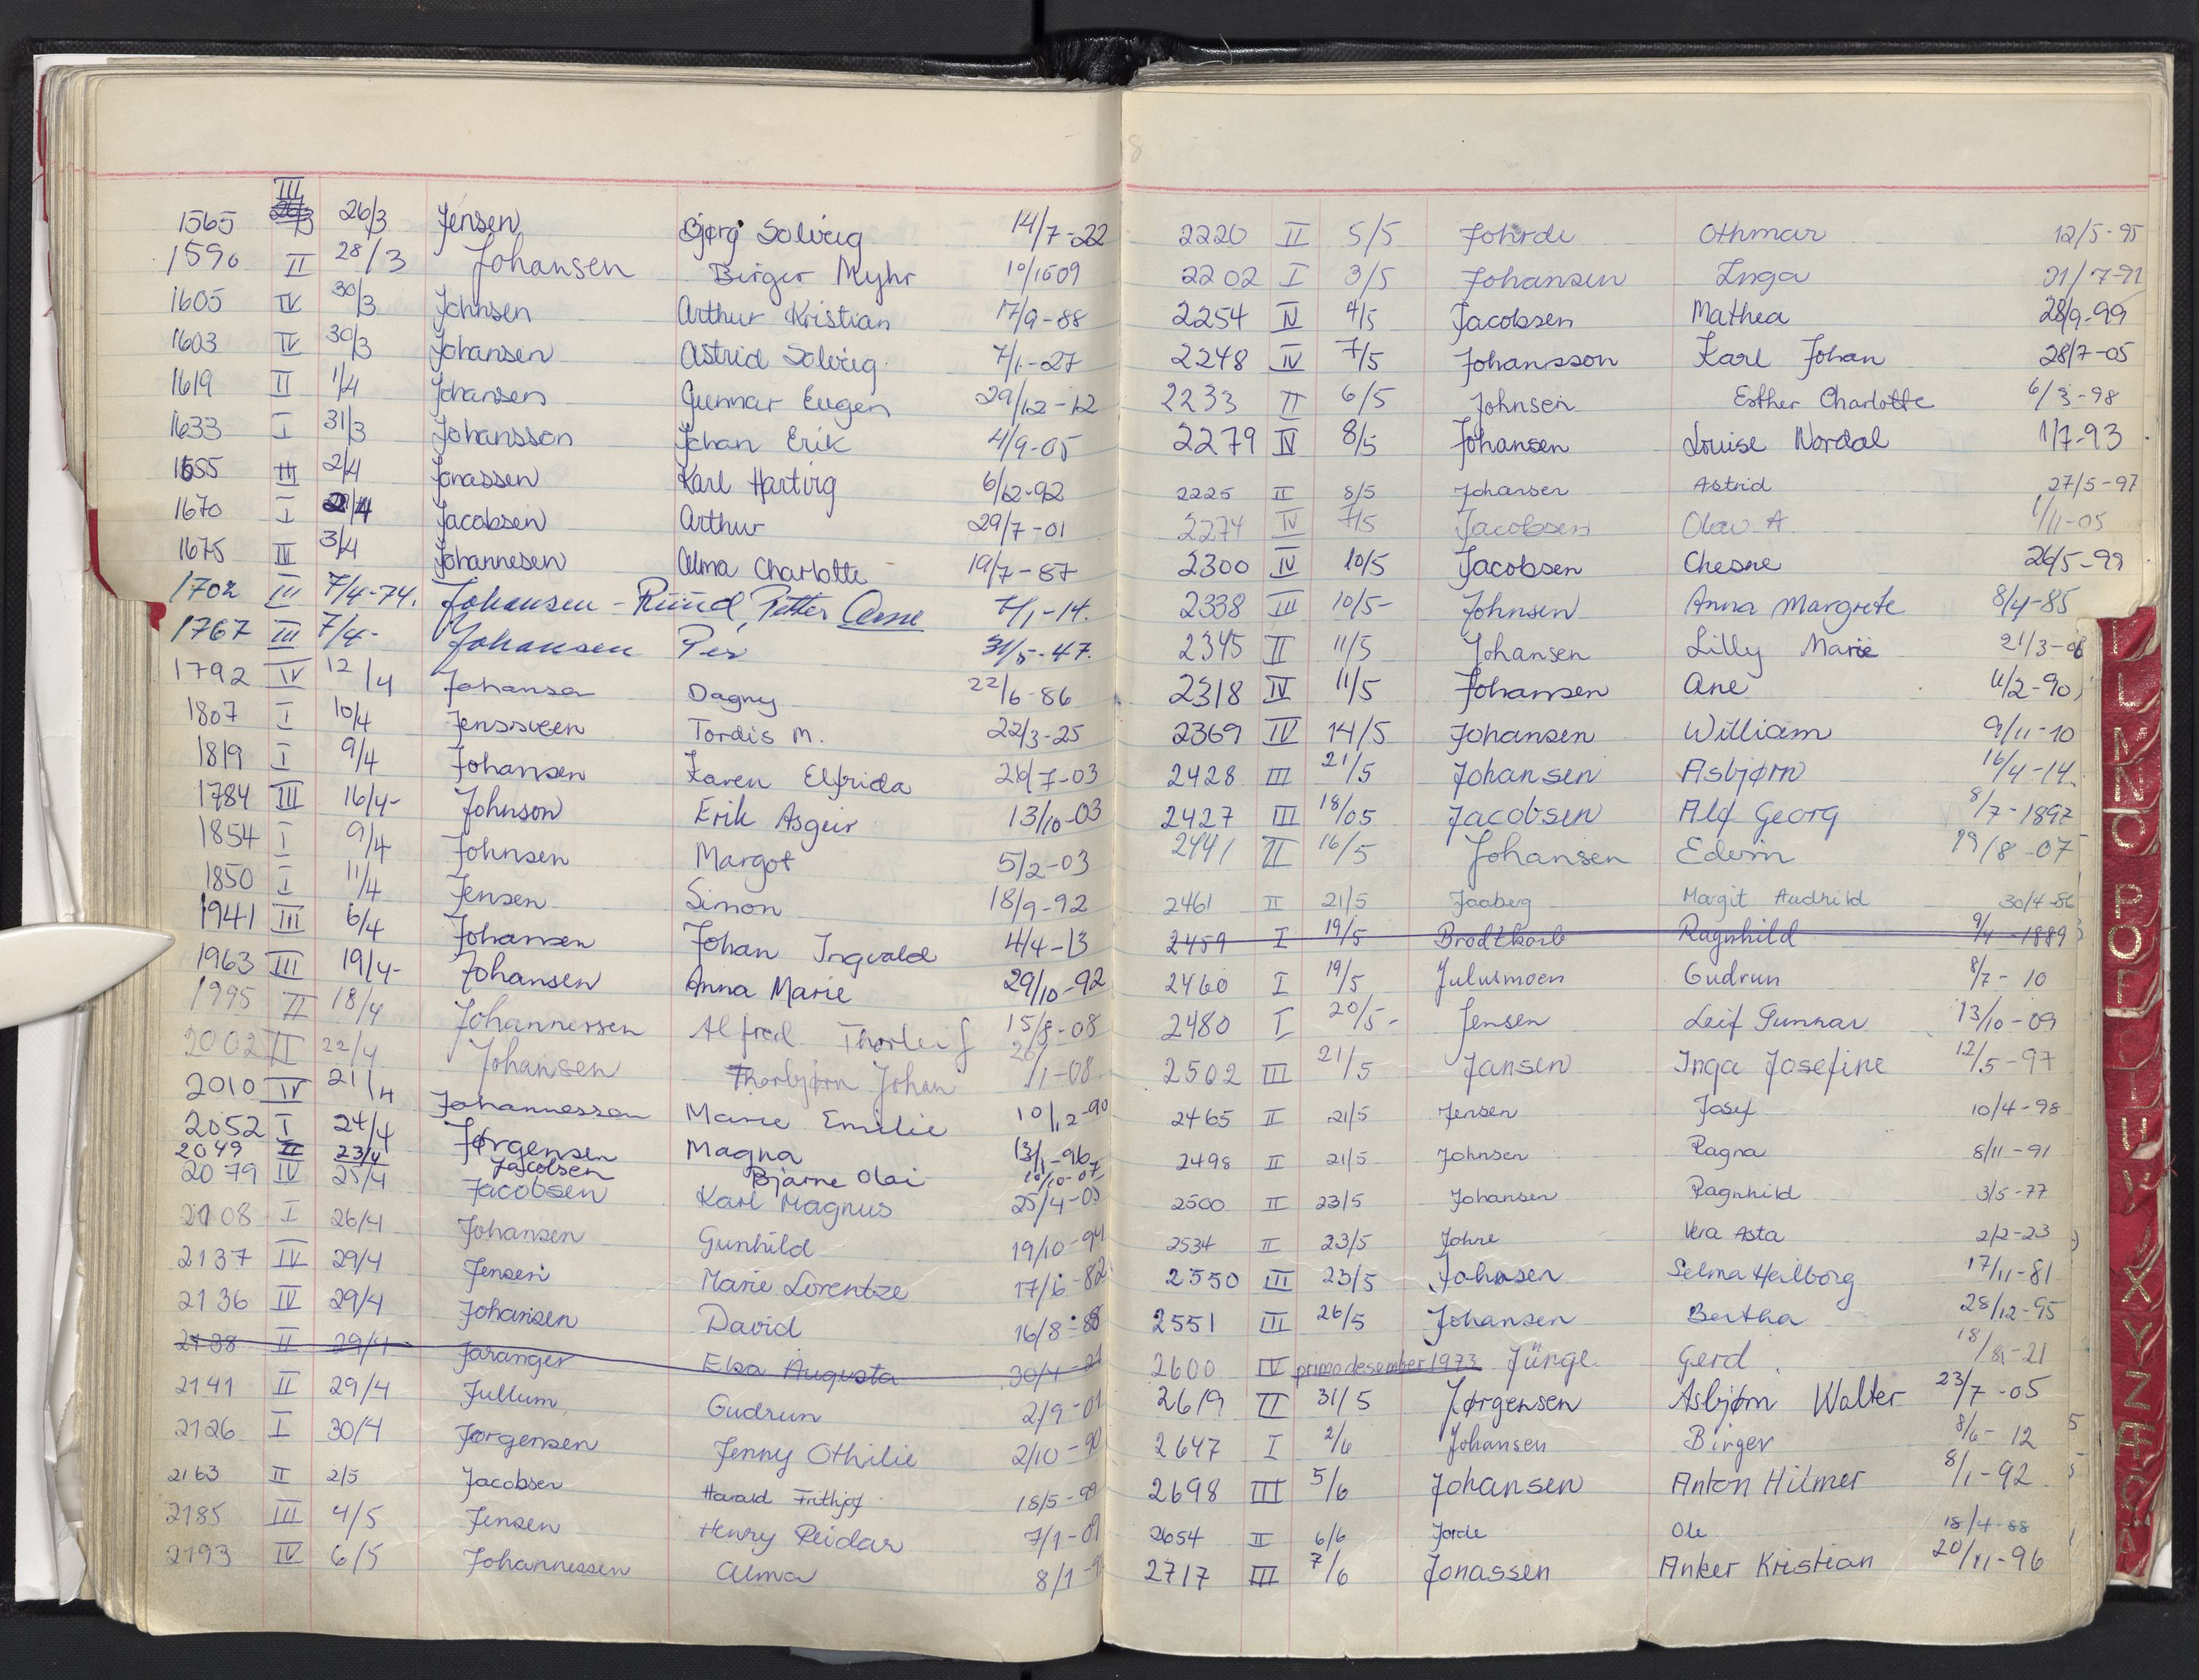 1565 III 26/3 Jensen Bjørg Solveig 14/7-22
1590 II 28/3 Johansen Birger Myhr 10/1509
1605 IV 30/3 Johnsen Arthur Kristian 17/9-88
1603 IV 30/3 Johansen Astrid Solveig 7/1-27
1619 II 1/4 Johansen Gunnar Eugen 29/12-12
1633 I 31/3 Johansson Johan Erik 4/9-05
1655 III 2/4 Jonassen Karl Hartvig 6/12-92
1670 I 2/4 Jacobsen Arthur 29/7-01
1675 III 3/4 Johannesen Alma Charlotte 19/7-87
1702 III 7/4-74. Johansen-Ruud, Petter Arne 7/1-14.
1767 III 7/4- Johansen Per 31/5-47.
1792 IV 12/4 Johansen Dagny 22/6-86
1807 I 10/4 Jenssveen Tordis M. 22/3-25
1819 I 9/4 Johansen Karen Elfrida 26/7-03
1784 III 16/4- Johnson Erik Asgeir 13/10-03
1854 I 9/4 Johnsen Margot 5/2-03
1850 I 11/4 Jensen Simon 18/9-92
1941 III 6/4 Johansen Johan Ingvald 4/4-13
1963 III 19/4- Johansen Anna Marie 29/10-92
1995 II 18/4 Johannessen Alfred Thorleif 15/8-08
2002 II 22/4 Johansen Thorbjørn Johan 26/1-08
2010 IV 21/4 Johannessen Marie Emilie 10/12-90
2052 I 24/4 Jørgensen Magna 13/1-96
2049 II 23/4 Jacobsen Bjarne Olai 10/10-07
2079 IV 25/4 Jacobsen Karl Magnus 25/4-05
2108 I 26/4 Johansen Gunhild 19/10-94
2137 IV 29/4 Jensen Marie Lorentze 17/6-82
2136 IV 29/4 Johansen David 16/8-88
2138 II 29/4 Jaranger Elsa Augusta 30/4-21
2141 II 29/4 Jullum Gudrun 2/9-01
2126 I 30/4 Jørgensen Jenny Othilie 2/10-90
2163 II 2/5 Jacobsen Harald Frithjof 18/5-99
2185 III 4/5 Jensen Henry Reidar 7/1-09
2193 IV 6/5 Johannessen Alma 8/1
2220 II 5/5 Johrde Othmar 12/5-95
2202 I 3/5 Johansen Inga 21/7-91
2254 IV 4/5 Jacobsen Mathea 28/9-99
2248 IV 7/5 Johansson Karl Johan 28/7-05
2233 II 6/5 Johnsen Esther Charlotte 6/3-98
2279 IV 8/5 Johansen Louise Nordal 1/7-93
2225 II 8/5 Johansen Astrid 27/5-97
2274 IV 7/5 Jacobsen Olav A. 1/11-05
2300 IV 10/5 Jacobsen Chesne 26/5-99
2338 III 10/5- Johnsen Anna Margrete 8/4-85
2345 II 11/5 Johansen Lilly Marie 21/3-06
2318 IV 11/5 Johansen Ane 11/2-90
2369 IV 14/5 Johansen William 9/11-10
2428 III 21/5 Johansen Asbjørn 16/4-14.
2427 III 18/05 Jacobsen Alf Georg 8/7-1897
2441 II 16/5 Johansen Edvin 29/8-07
2461 II 21/5 Jaaberg Margit Audhild 30/4-86
2459 I 19/5 Brodtkorb Ragnhild 9/4-1889
2460 I 19/5 Julusmoen Gudrun 8/7-10
2480 I 20/5- Jensen Leif Gunnar 13/10-09
2502 III 21/5 Jansen Inga Josefine 12/5-97
2465 II 21/5 Jensen Josef 10/4-98
2498 II 21/5 Johnsen Ragna 8/11-91
2500 II 23/5 Johansen Ragnhild 3/5-77
2534 II 23/5 Johre Vera Asta 2/2-23
2550 III 23/5 Johnsen Selma Heilborg 17/11-81
2551 III 26/5 Johansen Bertha 28/12-95
2600 IV primo desember 1973 Jünge Gerd 18/8-21
2619 II 31/5 Jørgensen Asbjørn Walter 23/7-05
2647 I 2/6 Johansen Birger 8/6-12
2698 III 5/6 Johansen Anton Hilmer 8/1-92
2654 II 6/6 Jorde Ole 18/4-88
2717 III 7/6 Jonassen Anker Kristian 20/11-96
L
M
N
O
P